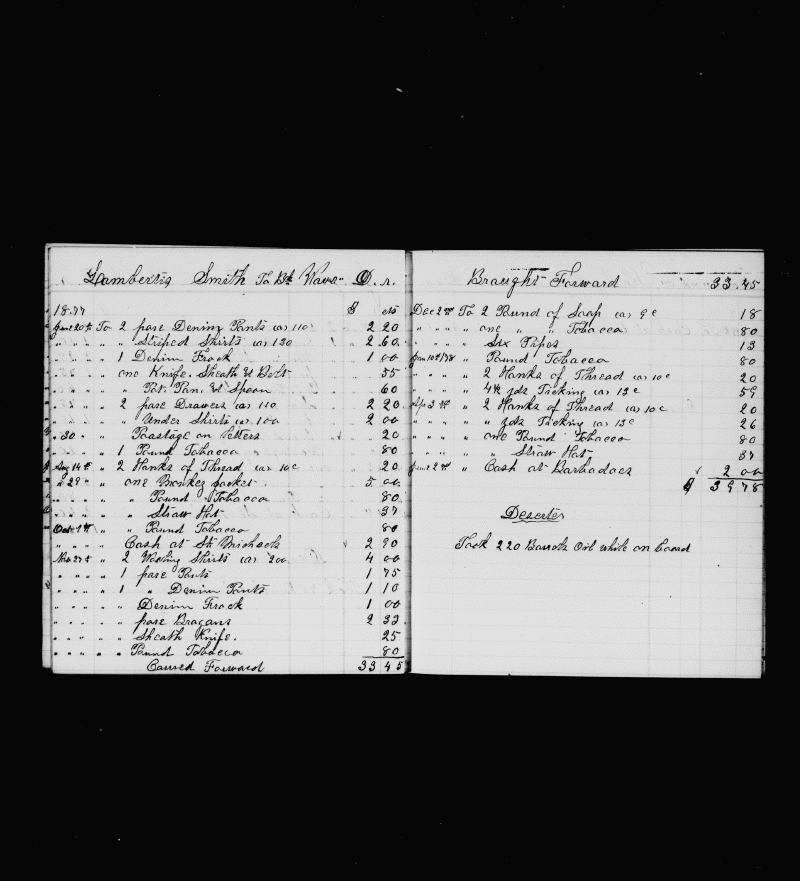 Lambertis Smith To Bk Wave D.r.
1877 $ cts
June 20th To 2 pare Denim Pants (a) 110 2 20
" " " " " Striped Shirts (a) 130 2 60
" " " " 1 Denim Frock 1 00
" " " " one Knife. Sheath & Belt 55
" " " " " Pot. Pan. & Spoon 60
" " " " 2 pare Drawers (a) 110 2 20
" " " " " Under Shirts (a) 100 2 00
" 30 " " Poastage on letters 20
" " " " 1 Pound Tobacco 80
Aug 14th " 2 Hanks of Thread (a) 10c 20
" 29 " " one Monkey Jacket 5 00
" " " " " Pound Tobacco 80
" " " " " Straw Hat 37
Oct 1st " " Pound Tobacco 80
" " " " Cash at St Michaels 2 90
Nov 27th " 2 Wooling Shirts (a) 200 4 00
" " " " 1 pare Pants 1 75
" " " " 1 " Denim Pants 1 10
" " " " " Denim Frock 1 00
" " " " " pare Brogans 2 33
" " " " " Sheath Knife. 25
" " " " " Pound Tobacco 80
Carred Forward 33 45
Braught Forward 33.45
Dec 2nd To 2 Pound of Soap (a) 9c 18
" " " " one " " Tobacco 80
" " " " Six Pipes 13
Jan 10th/78 " Pound Tobacco 80
" " " " 2 Hanks of Thread (a) 10c 20
" " " " 4½ yds Ticking (a) 13c 59
Apr 3rd " 2 Hanks of Thread (a) 10c 20
" " " " " yds Ticking (a) 13c 26
" " " " one Pound Tobacco 80
" " " " " Straw Hat 37
June 2nd " Cash at Barbadoes 2 00
$ 39 78
Deserter
Took 220 Barrels Oil while on board